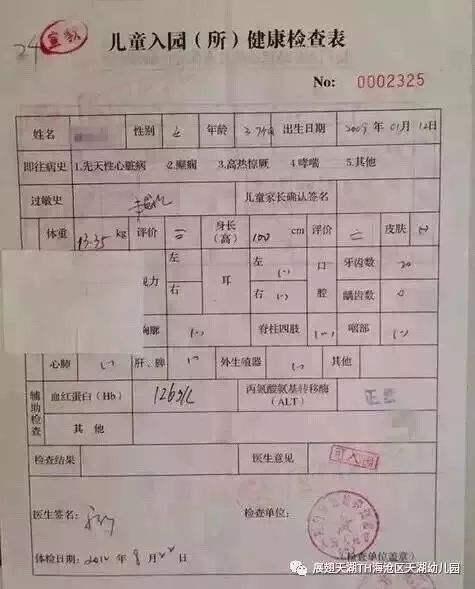 24 宣教
儿童入园（所）健康检查表
No: 0002325
姓名 性别 女 年龄 3.7 出生日期 2009 年 01 月 12 日
既往病史 1.先天性心脏病 2.癫痫 3.高热惊厥 4.哮喘 5.其他
过敏史 儿童家长确认签名
体重 13.35 kg 评价 二 身长（高） 100 cm 评价 二 皮肤 (-)
力 左 耳 左 (-) 口腔 牙齿数 20
右 右 (-) 龋齿数 0
廓 (-) 脊柱四肢 (-) 咽部 (-)
心肺 (-) 肝、脾 (-) 外生殖器 (-) 其他
辅助检查 血红蛋白（Hb） 126g/L 丙氨酸氨基转移酶（ALT） 正常
其他
检查结果 医生意见 可入园
医生签名： 检查单位：
体检日期：2012 年 8 月 22 （检查单位盖章）
展翅天湖TH海沧区天湖幼儿园